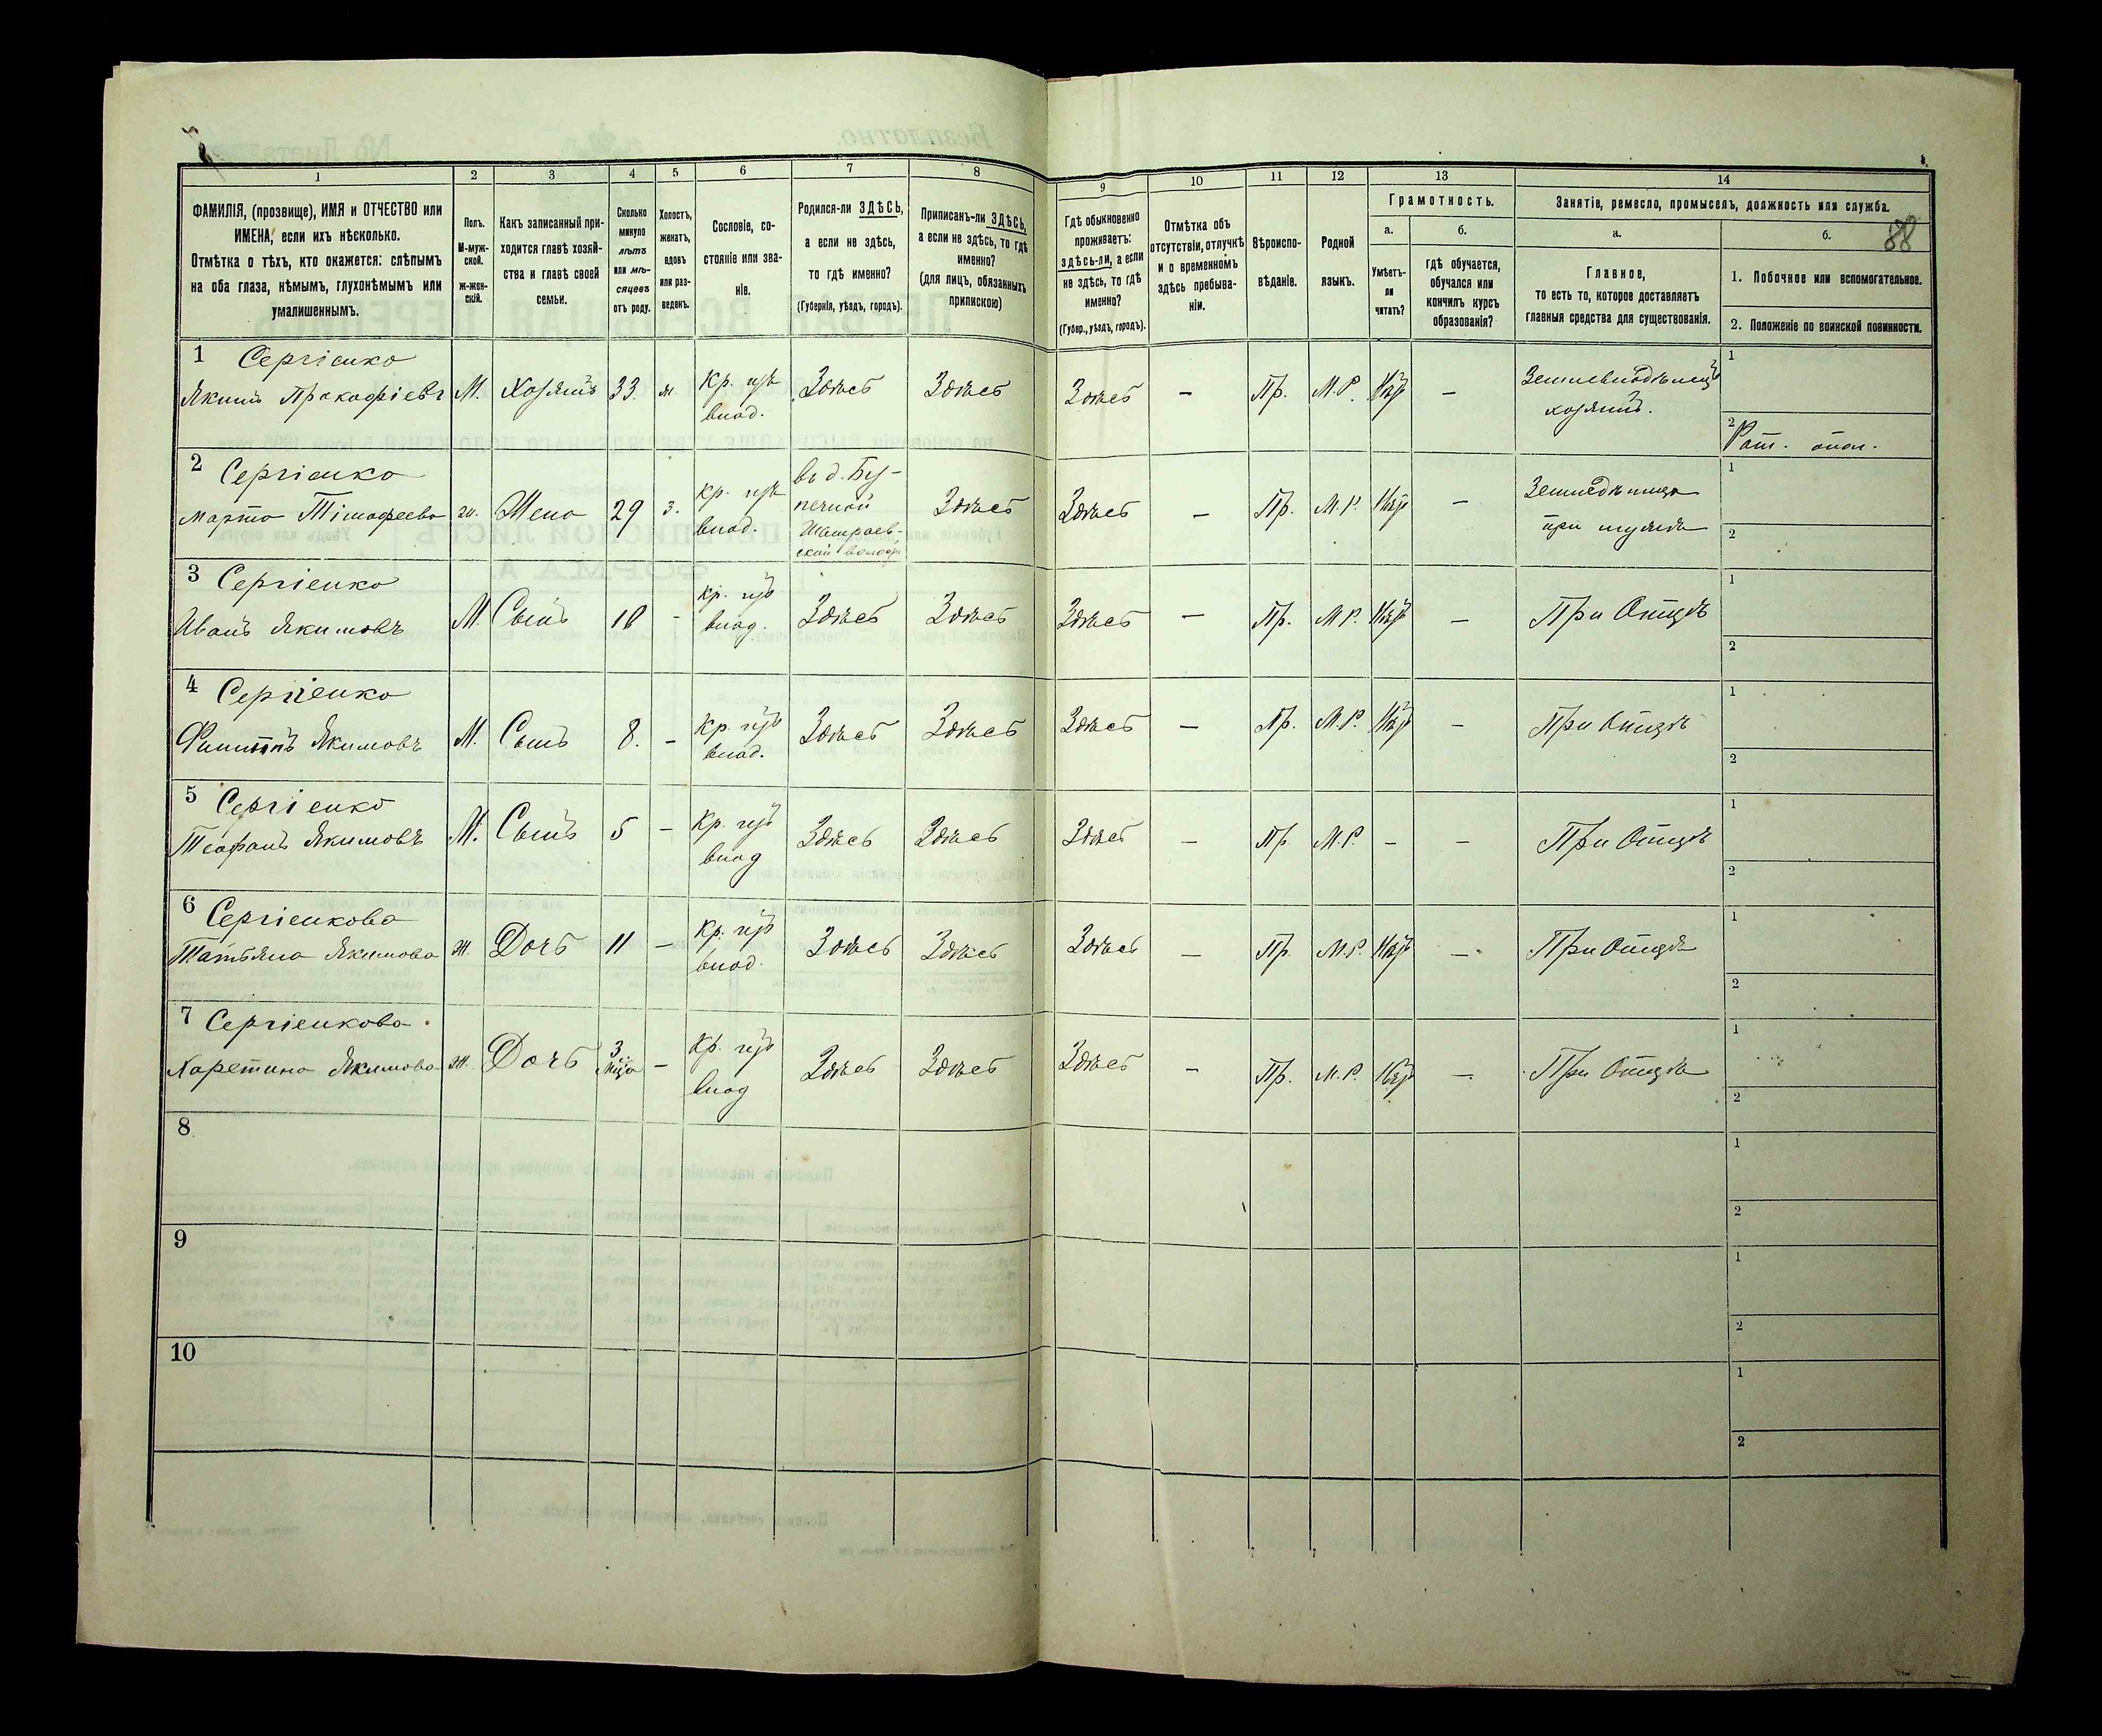 1
2
3
4
5
6
7
8
9
10
11
12
13
14
ФАМИЛІЯ, (прозвище), ИМЯ и ОТЧЕСТВО или
ИМЕНА, если ихъ нѣсколько.
Отмѣтка о тѣхъ, кто окажется: слѣпымъ
на оба глаза, нѣмымъ, глухонѣмымъ или
умалишеннымъ.
Полъ.
М-муж-
ской.
ж-жен-
скій.
Какъ записанный при-
ходится главѣ хозяй-
ства и главѣ своей
семьи.
Сколько
минуло
лѣтъ
или мѣ-
сяцевъ
отъ роду.
Холостъ,
женатъ,
вдовъ
или раз-
веденъ.
Сословіе, со-
стояніе или зва-
ніе.
Родился-ли ЗДѢСЬ,
а если не здѣсь,
то гдѣ именно?
(Губернія, уѣздъ, городъ).
Приписанъ-ли ЗДѢСЬ,
а если не здѣсь, то гдѣ
именно?
(для лицъ, обязанныхъ
припискою)
Гдѣ обыкновенно
проживаетъ:
здѣсь-ли, а если
не здѣсь, то гдѣ
именно?
(Губер., уѣздъ, городъ).
Отмѣтка объ
отсутствіи, отлучкѣ
и о временномъ
здѣсь пребыва-
ніи.
Вѣроиспо-
вѣданіе.
Родной
языкъ.
Грамотность.
а.
Умѣетъ-
ли
читать?
б.
гдѣ обучается,
обучался или
кончилъ курсъ
образованія?
Занятіе, ремесло, промыселъ, должность или служба.
а.
Главное,
то есть то, которое доставляетъ
главныя средства для существованія.
б.
88
1. Побочное или вспомогательное.
2. Положеніе по воинской повинности.
1 Сергіенко
Якимъ Прокофіевъ М. Хозяинъ 33 Кр. изъ Здѣсь Здѣсь Здѣсь — Пр. М.Р. —
влад.
хозяинъ.
1
2 Рат. опол.
2 Сергіенко
Марта Тімофеева Жена 29 з. Кр. изъ Здѣсь Здѣсь — Пр. М.Р. —
влад.
волости
1
2
3 Сергіенко
Иванъ Якимовъ М. Сынъ 10 - Кр. изъ Здѣсь Здѣсь Здѣсь — Пр. М.Р. — При Отцѣ
влад.
1
2
4 Сергіенко
Филиппъ Якимовъ М. Сынъ 8. - Кр. изъ Здѣсь Здѣсь Здѣсь — Пр. М.Р. — При Отцѣ
влад.
1
2
5 Сергіенко
Якимовъ М. Сынъ 5 — Кр. изъ Здѣсь Здѣсь Здѣсь — Пр. М.Р. — — При Отцѣ
влад
1
2
6 Сергіенкова
Татьяна Якимова Ж. Дочь 11 — Кр. изъ Здѣсь Здѣсь Здѣсь — Пр. М.Р. — При Отцѣ
влад.
1
2
7 Сергіенкова
Харетина Якимова Ж. Дочь 3 — Кр. изъ Здѣсь Здѣсь Здѣсь — Пр. М.Р. — При Отцѣ
влад
1
2
8
1
2
9
1
2
10
1
2